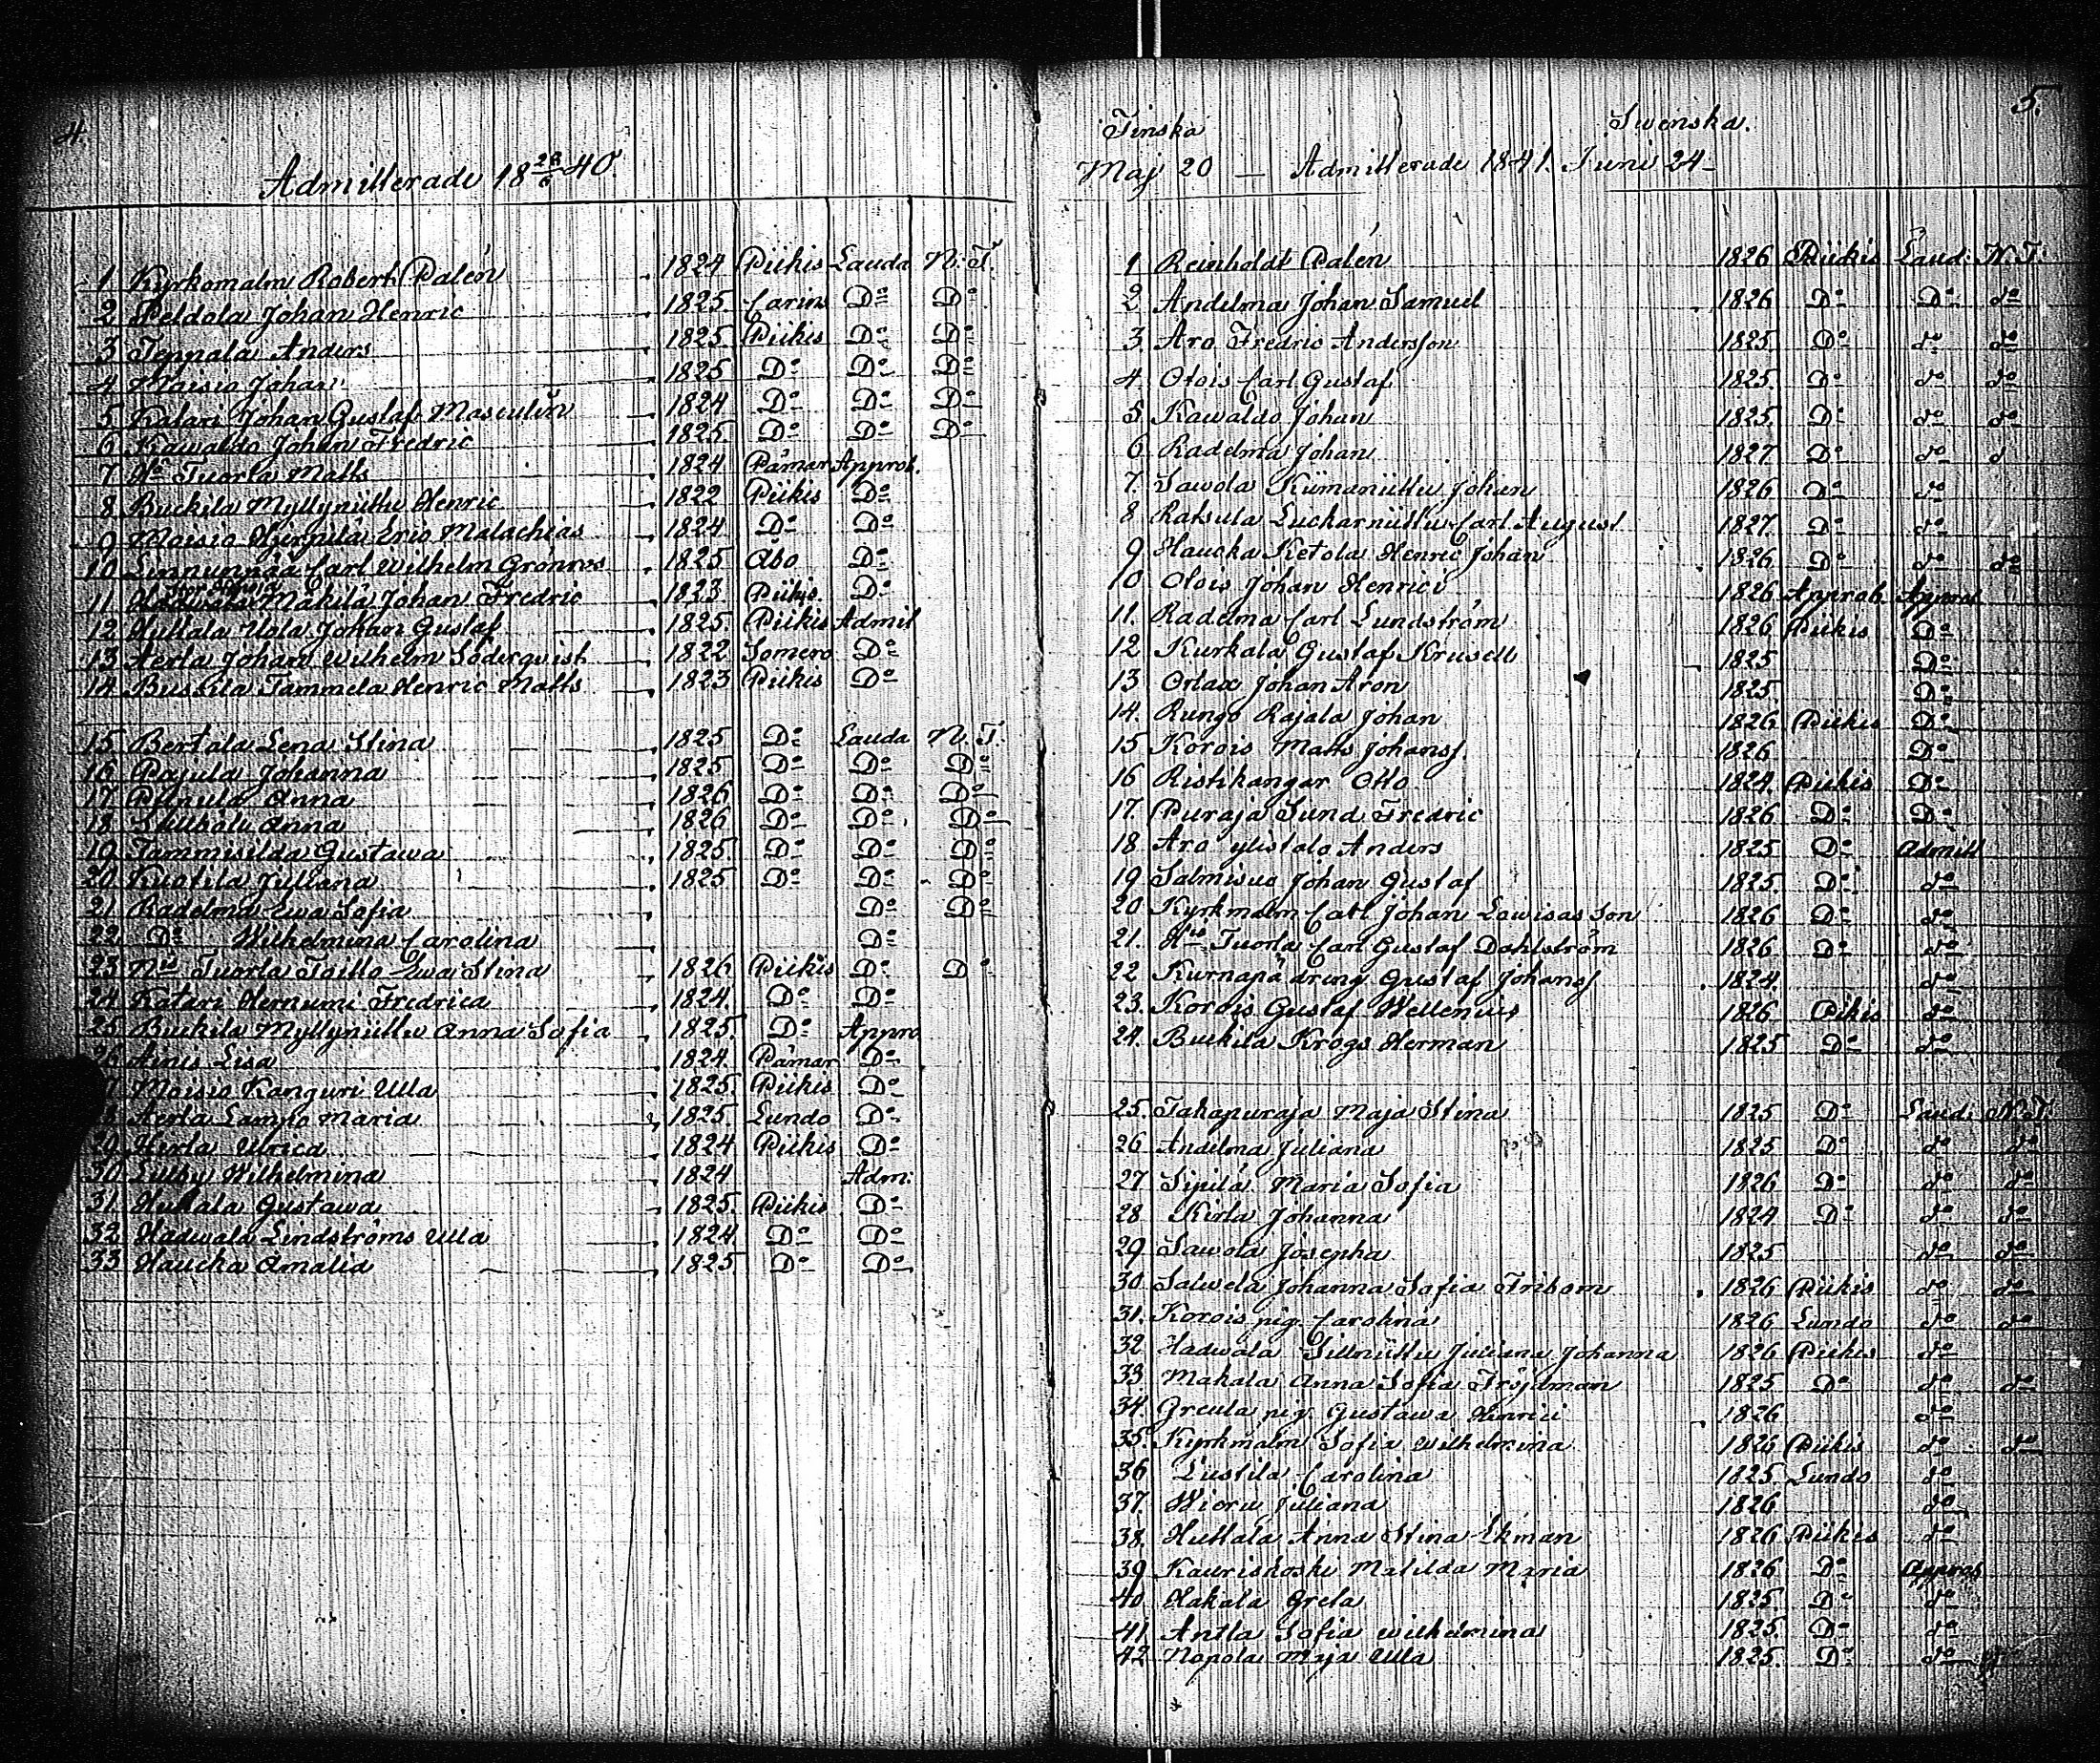 4.
Admitterade 18 28/6 40.
1 Kyrkomalm Robert Palén 1824 Piikis Lauda N. T.
2 Peldola Johan Henric 1825. Carins Do Do
3 Teppala Anders 1825 Piikis Do Do
4 Moisio Johan 1825 Do Do Do
5 Katari Johan Gustaf Masculin 1824 Do Do Do
6 Kawaldo Johan Fredric 1825. Do Do Do
7 Tuorla Matts 1824 Pämar Approb.
8 Buckila Myllyniittu Henric 1822 Piikis Do
9 Moisio Eric Malachias 1824 Do Do
10 Linnunpää Carl Wilhelm Grönroos 1825 Abo Do
11 Mäkilä Johan Fredric 1823 Piikis. Do
12 Huttala Uola Johan Gustaf 1825. Piikis Admit
13 Aerla Johan Wilhelm Söderqvist 1822 Somero Do
14 Tammela Henric Matts 1823 Piikis Do
15 Bertala Lena Stina 1825 Do Lauda N. T.
16 Pajula Johanna 1825 Do Do Do
17 Anna 1826 Do Do Do
18 Anna 1826 Do Do Do
19 Tammisilda Gustawa 1825. Do Do Do
20 Kustila Juliana 1825 Do Do Do
21 Radelma Ewa Sofia Do Do
22 Do Wilhelmina Carolina Do
23 Tuorla Taillo Ewa Stina 1826 Piikis Do Do
24 Katari Hernumi Fredrica 1824. Do Do
25 Buckila Myllyniittu Anna Sofia 1825. Do Appro
26 Lisa 1824. Pämar Do
Moisio Kanguri Ulla 1825. Piikis Do
Aerla Lampo Maria 1825. Lundo Do
29 Ulrica 1824 Piikis Do
30 Wilhelmina 1824 Adm:
31 Gustawa 1825. Piikis Do
32 Hadwala Lindströms Ulla 1824. Do Do
33 Haucka Amalia 1825. Do Do
5.
Finska Swenska.
Maj 20 — Admitterade 1841. Juni 24 –
1 Reinholdt Palén 1826 Piikis Laud: N. T.
2 Andelma Johan Samuel 1826 Do Do do
3. Aro Fredric Andersson 1825. Do do do
4 Otois Carl Gustaf 1825 Do do do
5 Kawaldo Johan 1825. Do do do
6 Radelma Johan 1827 Do do d
7. Sawola Johan 1826 Do do
8 Raksula Carl August 1827. Do do
9 Haucka Ketola Henric Johan 1826 Do do do
10 Otois Johan Henrici 1826 Approb. Approb
11. Radelma Carl Lundström 1826 Piikis Do
12 Kurkala Gustaf Krusell 1825 Do
13 Orlax Johan Aron 1825 Do
14. Rungo Rajala Johan 1826 Piikis Do
15 Korois Matts Johanss. 1826 Do
16 Ristikangar Otto 1824. Piikis Do
17. Puraja Sund Fredric 1826 Do Do
18 Aro ylistalo Anders 1825 Do Admitt
19 Salmisuo Johan Gustaf 1825. Do do
20 Kyrkmalm Carl Johan Lowisas Son 1826 Do do
21. Tuorla Carl Gustaf Dahlström 1826 Do do
22 Kurnapä dreng Gustaf Johanss 1824. do
23. Korois Gustaf Wellenius 1826 Pikis do
24. Buckila Krogs Herman 1825 Do do
25. Takapuraja Maja Stina 1825 Do Laud: N. T.
26 Andelma Juliana 1825 Do do do
27 Sipilä Maria Sofia 1826 Do do do
28 Kirla Johanna 1824 Do do do
29 Sawola Josepha 1825 do do
30. Salwela Johanna Sofia Fribom 1826 Piikis do do
31. Korois pig. Carolina 1826 Lundo do do
32 Hadwala Juliana Johanna 1826 Piikis do
33 Makala Anna Sofia Fröjdman 1825 Do do do
34. pig Gustawa Henrici 1826 do
35. Kyrkmalm Sofia Wilhelmina 1826 Piikis do do
36 Lustila Carolina 1825 Lundo do
37. Wioru Juliana 1826 do
38. Huttala Anna Stina Ekman 1826 Piikis do
39 Kauriskoski Matilda Maria 1826 Do Approb
40 Hakala Greta 1825 Do do
41 Antla Sofia Wilhelmina 1825. Do do
42 Nopola Maja Ulla 1825. Do do